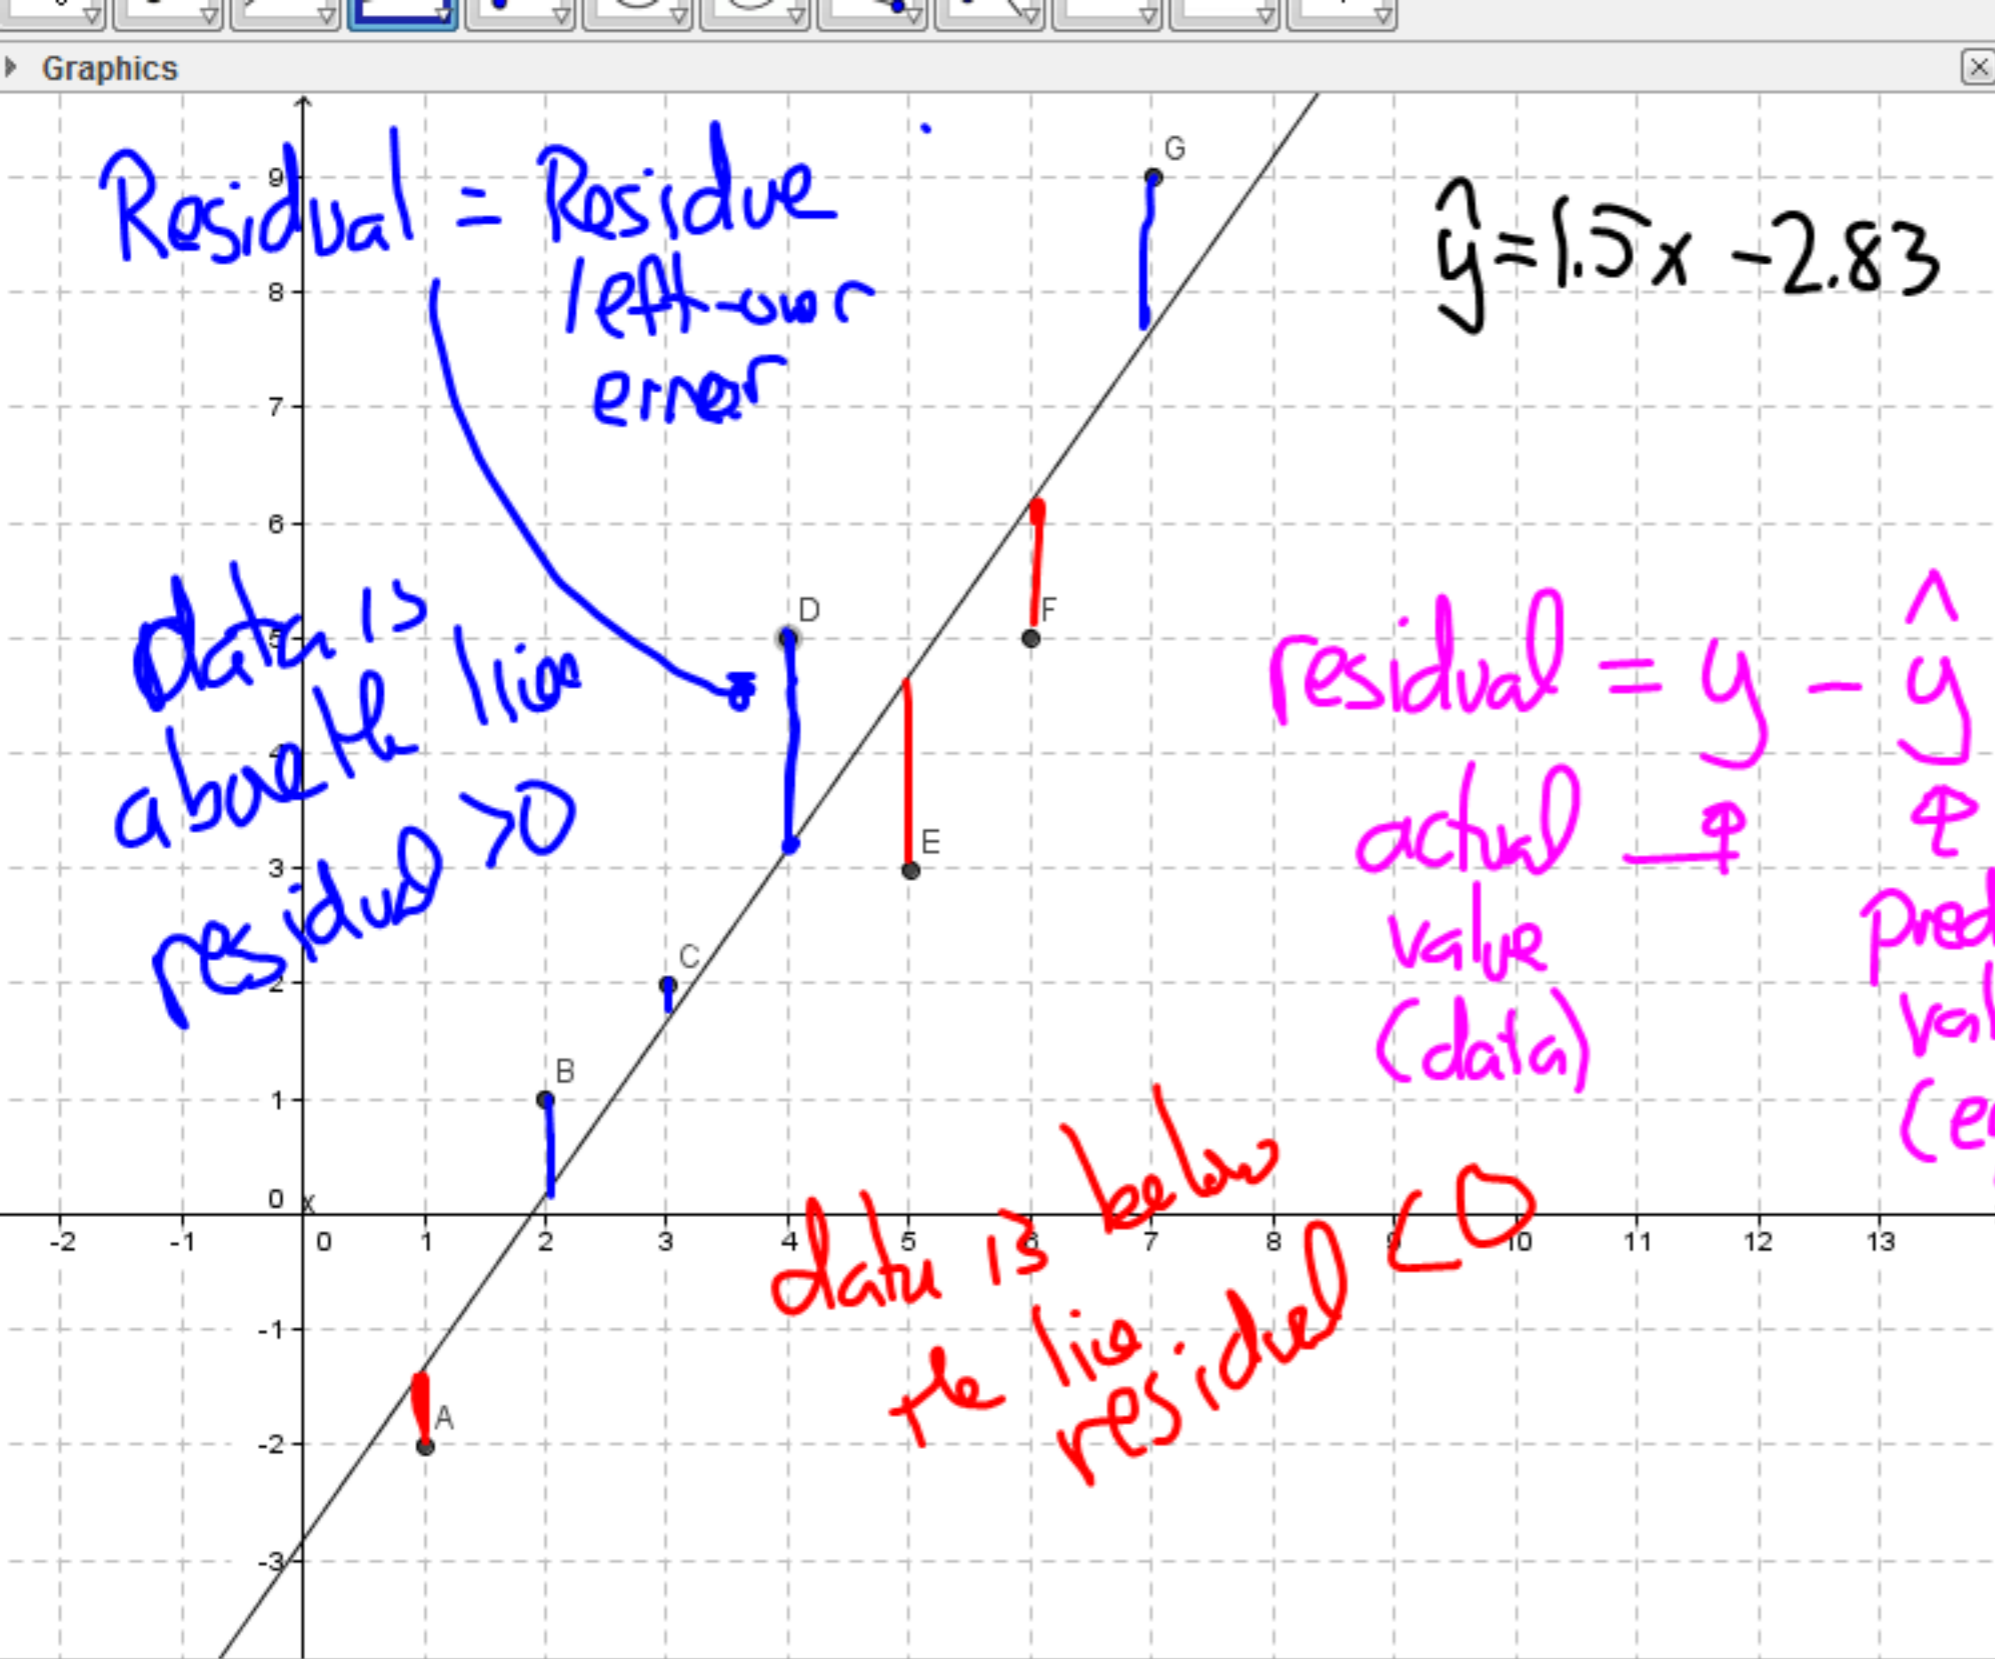 Graphics
Residual = Residue
left-over
error
ŷ = 1.5x - 2.83
data is
above the line
residual > 0
residual = y - ŷ
actual
value
(data)
pred
val
(e
data is below
the line
residual < 0
A
B
C
D
E
F
G
x
9
8
7
6
5
4
3
2
1
0
-1
-2
-3
-2 -1 0 1 2 3 4 5 6 7 8 9 10 11 12 13